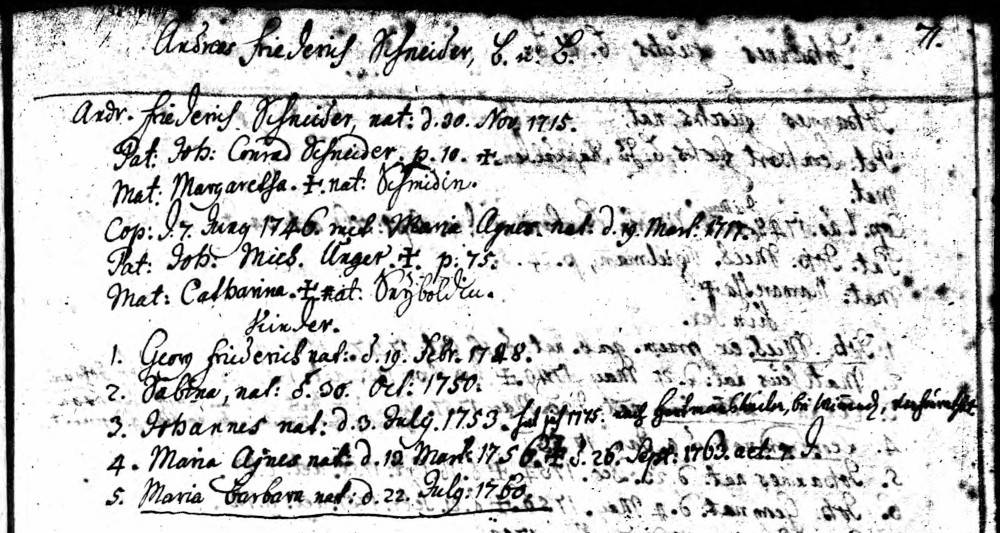 71.
Andreas Friederich Schneider, B. u. B.
Andr. Friederich Schneider, nat: d. 30. Nov. 1715.
Pat: Joh: Conrad Schneider. p. 10. ✝.
Mat: Margaretha. ✝. nat: Schmidin.
Cop: d. 7. Juny 1746. mit Maria Agnes. nat: d. 19. Mart. 1717.
Pat: Joh. Mich. Unger ✝. p. 75.
Mat: Catharina. ✝. nat: Seyboldin.
Kinder.
1. Georg Friederich nat: d. 19. Febr. 1748.
2. Sabina, nat: d. 30. Oct: 1750.
3. Johannes nat: d. 3. July. 1753. hat sich 1775. nach bei
4. Maria Agnes nat: d. 12. Mart. 1756. ✝ d. 26. Sept: 1763. aet. 7. J.
5. Maria Barbara nat: d. 22. July: 1760.